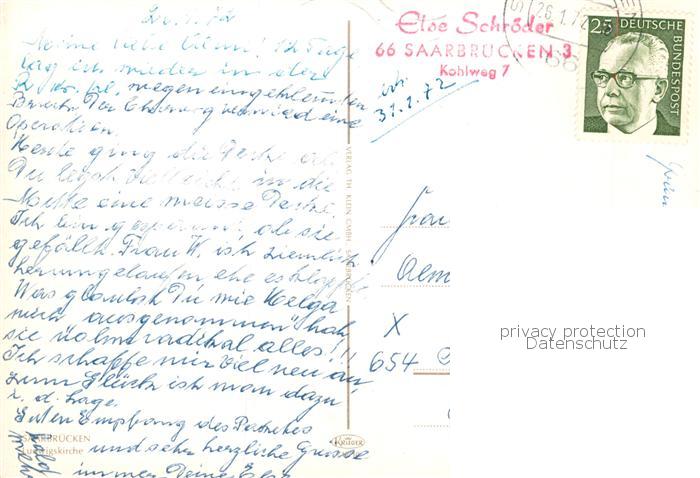 26.1.72
Meine liebe
12 Tage
lag ich wieder in der
wegen eingeklemmten
Bruch. Der Chefarzt vermied eine
Operation.
Heute ging die Decke ab.
Du legst vielleicht in die
Mitte eine weisse Decke.
Ich bin gespannt, ob sie
gefällt. Frau W. ist ziemlich
herumgelaufen, ehe es klappte.
Was glaubst Du wie Helga
mich "ausgenommen" hat
sie nahm radikal alles!!!
Ich schaffe mir viel neu an,
zum Glück ist man dazu
i. d. Lage.
Guten Empfang des Paketes
und sehr herzliche Grüsse
immer Deine Else
bald
mehr
SAARBRÜCKEN
Ludwigskirche
VERLAG TH. KLEIN GMBH. SAARBRÜCKEN
KRÜGER
Else Schröder
66 SAARBRÜCKEN 3
Kohlweg 7
31.1.72
26.1.72
66
25
DEUTSCHE
BUNDESPOST
Frau
X
654
privacy protection
Datenschutz